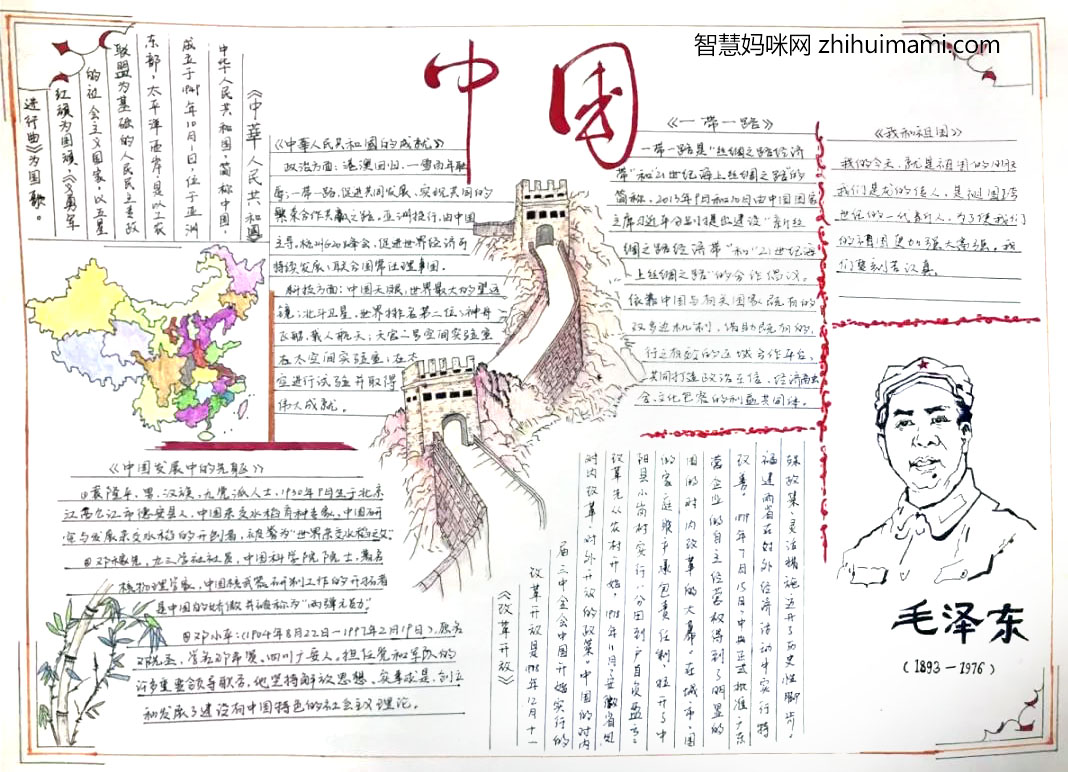 智慧妈咪网 zhihuimami.com
中国
《中華人民共和國
中华人民共和国，简称中国，
成立于1949年10月1日，位于亚洲
东部，太平洋西岸，是以工农
联盟为基础的人民民主专政
的社会主义国家，以五星
红旗为国旗，《义勇军
进行曲》为国歌。
《中華人民共和國的成就》
政治方面：港澳回归，一雪百年耻
辱；一带一路，促进共同发展、实现共同的
繁荣合作共赢之路，亚洲投行，由中国
主导，杭州G20峰会，促进世界经济可
持续发展；联合国常任理事国。
科技方面：中国天眼，世界最大的望远
镜；北斗卫星，世界排名第二位；神舟
飞船，载人航天；天宫二号空间实验室
在太空间实验室，在太
空进行试验并取得
伟大成就。
《一带一路》
一带一路是"丝绸之路经济
带"和"21世纪海上丝绸之路"的
简称，2013年9月和10月由中国国家
主席习近平分别提出建设"新丝
绸之路经济带"和"21世纪海
上丝绸之路"的合作倡议。
依靠中国与有关国家既有的
双多边机制，借助既有的、
行之有效的区域合作平台，
共同打造政治互信、经济融
合、文化包容的利益共同体。
《我和祖国》
我的今天，就是祖国的明天
我们是龙的传人，是祖国跨
世纪的一代新人，为了使我们
的祖国更加强大富强，我
们要刻苦认真。
《中国发展中的先驱》
①袁隆平，男，汉族，无党派人士，1930年9月生于北京
江西九江市德安县人，中国杂交水稻育种专家，中国研
究与发展杂交水稻的开创者，被誉为"世界杂交水稻之父"
②邓稼先，九三学社社员，中国科学院院士，著名
核物理学家，中国核武器研制工作的开拓者
是中国的骄傲并被称为"两弹元勋"
③邓小平：(1904年8月22日-1997年2月19日)，原名
邓先圣，学名邓希贤，四川广安人，担任党和军队的
许多重要领导职务，他坚持解放思想、实事求是，创立
和发展了建设有中国特色的社会主义理论。
《改革开放》
改革开放是1978年12月十一
届三中全会中国开始实行的
对内改革、对外开放的政策。中国的对内
改革先从农村开始，1978年11月，安徽省凤
阳县小岗村实行"分田到户，自负盈亏"
的家庭联产承包责任制，拉开了中
国的对内改革的大幕。在城市，国
营企业的自主经营权得到了明显的
改善。1979年7月15日，中央正式批准广东
福建两省在对外经济活动中实行特
殊政策、灵活措施，迈开了历史性脚步，
毛泽东
(1893-1976)